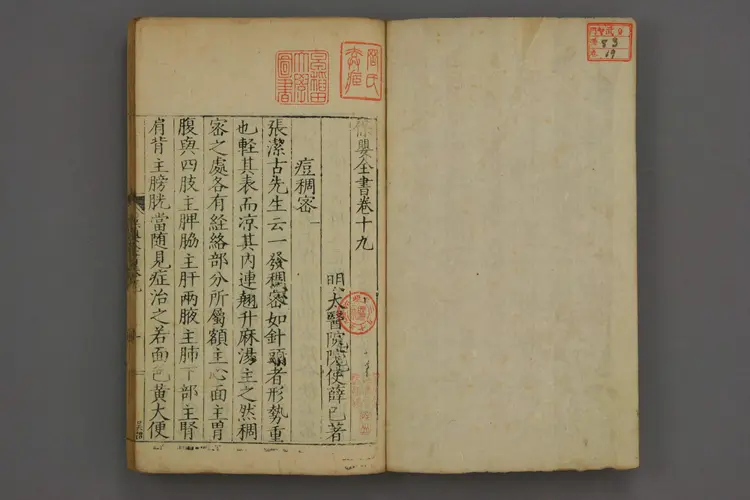 保嬰全書卷十九
明太醫院院使薛己著
痘稠密
張潔古先生云一發稠密如針頭者形勢重
也輕其表而凉其內連翹升麻湯主之然稠
密之處各有經絡部分所屬額主心面主胃
腹與四肢主脾脇主肝兩腋主肺下部主腎
肩背主膀胱當隨見症治之若面色黃大便
早稻田大學圖書
83
19